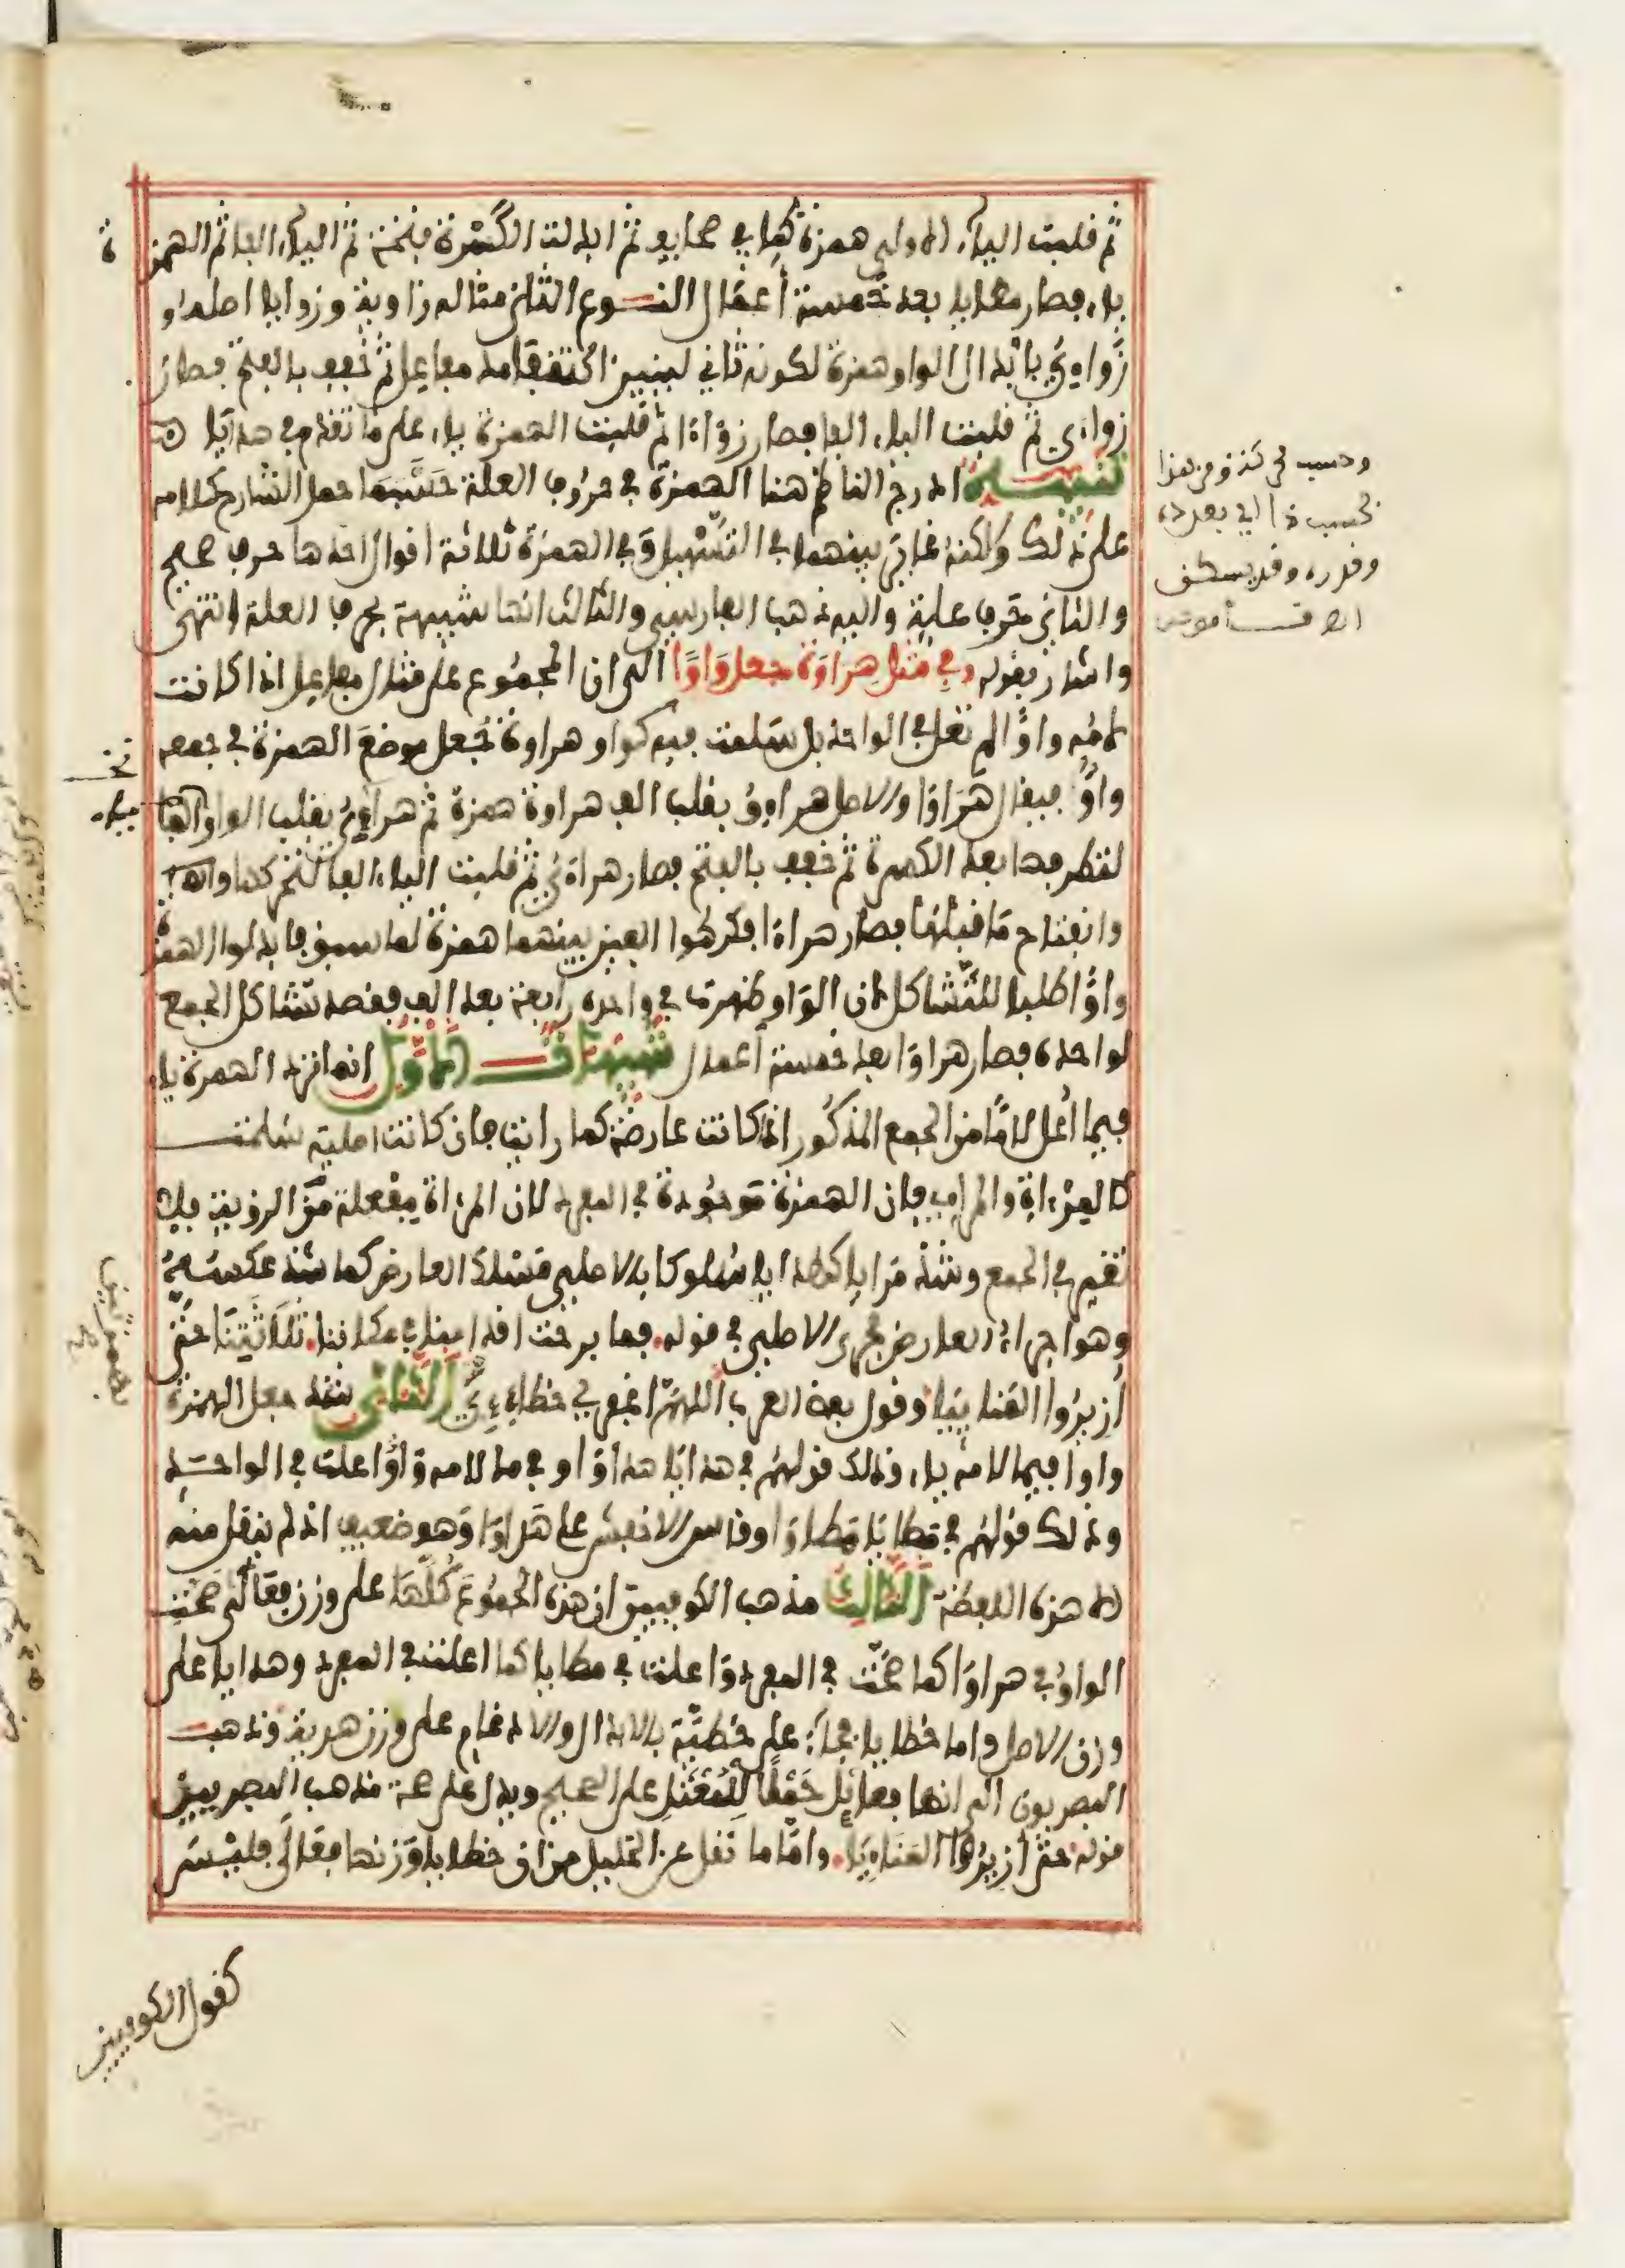 ثم قلبت الياء الاولى همزة كما في صحايف ثم ابدلت الكسرة فتحة ثم الياء الفا ثم الهمزة
ياء فصار مطايا بعد خمسة أعمال النوع الثاني مثاله زاوية وزوايا اصله
زَوَاوِيُ بابدال الواو همزة لكونه ثاني لينين اكتنفا مد مفاعل ثم خفف بالفتح فصار
زواءي ثم قلبت الياء الفا فصار زواءا ثم قلبت الهمزة ياء على ما تقدم في هدايا
تنبيه ادرج الناظم هنا الهمزة في حروف العلة حسبما حمل الشارح كلامه
على ذلك ولكنه غاير بينهما في التسهيل وفي الهمزة ثلاثة اقوال احدها حرف صحيح
والثاني حرف علة واليه ذهب الفارسي والثالث انها شبيهة بحرف العلة انتهى
واشار بقوله وفي مثل هراوة جعل واوا الى ان المجموع على مثال مفاعل اذا كانت
لامه واوا لم تعل في الواحد بل سلمت فيه كواو هراوة تجعل موضع الهمزة في جمعه
واوا فيقال هراوا والاصل هراوو بقلب الف هراوة همزة ثم هراءي بقلب الواو
لتطرفها بعد الكسرة ثم خفف بالفتح فصار هراءي ثم قلبت الياء الفا لتحركها
وانفتاح ما قبلها فصار هراءا فكرهوا الفين بينهما همزة لما سبق فابدلوا الهمزة
واوا طلبا للتشاكل لان الواو ظهرت في واحده رابعة بعد الف فقصد تشاكل الجمع
لواحده فصار هراوا بعد خمسة أعمال تنبيهات الاول انما ترد الهمزة ياء
فيما أعل لاما من الجمع المذكور اذا كانت عارضة كما رايت فان كانت اصلية سلمت
كالمرءاة والمراءي فان الهمزة موجودة في المفرد لان المرءاة مفعلة من الرؤية فلا
تغير في الجمع وشذ مرايا كهدايا سلوكا بالاصلي مسلك العارض كما شذ عكسه
وهو اجراء العارض مجرى الاصلي في قوله فما برحت اقدامنا في مكاننا ثلاثتنا حتى
أزيروا المنائيا وقول بعض العرب اللهم اغفر لي خطائئي الثاني شذ جعل الهمزة
واوا فيما لامه ياء وذلك قولهم في هدايا هداوا او في ما لامه واو اعلت في الواحد
وذلك قولهم في مطايا مطاوا وقاس الاخفش على هداوا وهو ضعيف اذ لم ينقل منه
الا هذه اللفظة الثالث مذهب الكوفيين ان هذه الجموع كلها على وزن فعالى صحت
الواو في هراوا كما صحت في المفرد واعلت في مطايا كما اعلت في المفرد وهدايا على
وزن الاصل واما خطايا فجاء على خطية بالابدال والادغام على وزن هدية وذهب
البصريون الى انها فعائل حملا للمعتل على الصحيح ويدل على صحة مذهب البصريين
قوله حتى أزيروا المنائيا واما ما نقل عن الخليل من ان خطايا وزنها فعالى فليس
كقول الكوفيين